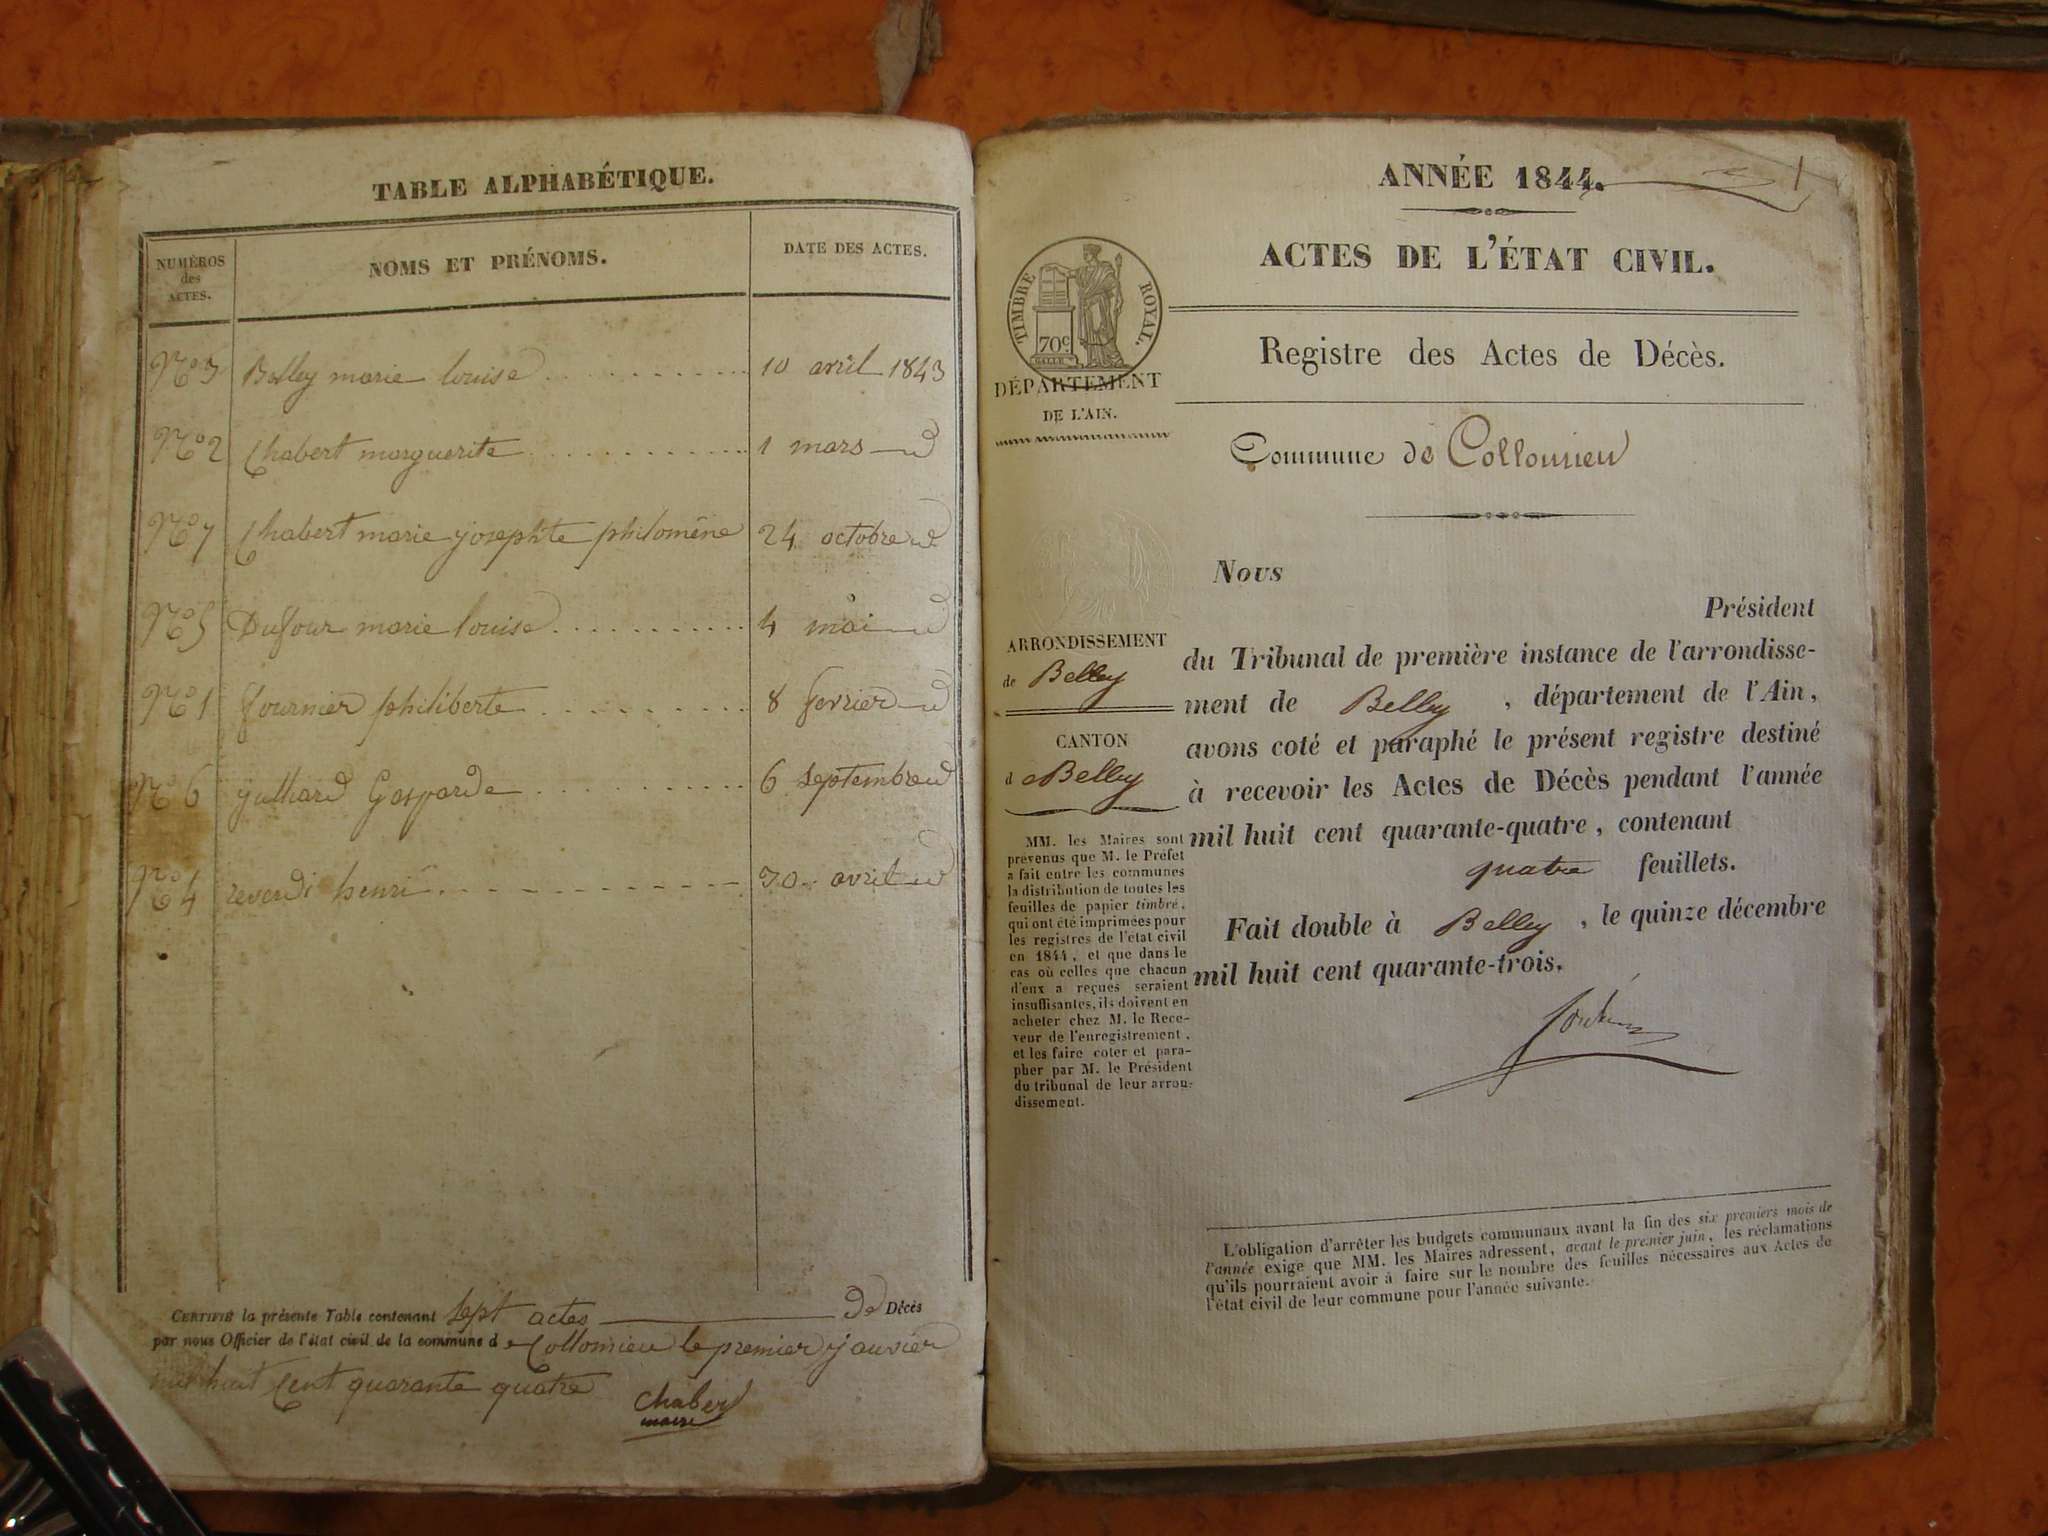 TABLE ALPHABÉTIQUE.
NUMÉROS des ACTES.
NOMS ET PRÉNOMS.
DATE DES ACTES.
N.º 3 Belley marie louise 10 avril 1843
N.º 2 Chabert marguerite 1 mars d
N.º 7 Chabert marie josephte philomène 24 octobre d
N.º 5 Dufour marie louise 4 mai d
N.º 1 fournier philiberte 8 fevrier d
N.º 6 julliard Gasparde 6 septembre d
N.º 4 reverdi henri 30 avril d
CERTIFIÉ la présente Table contenant sept actes de Décès
par nous Officier de l'état civil de la commune de Collomieu le premier janvier
mil huit Cent quarante quatre
Chabert
maire
ANNÉE 1844.
1
ACTES DE L'ÉTAT CIVIL.
TIMBRE ROYAL.
70c.
Registre des Actes de Décès.
DÉPARTEMENT
DE L'AIN.
Commune de Collomieu
Nous
Président
du Tribunal de première instance de l'arrondisse-
ment de Belley, département de l'Ain,
avons coté et paraphé le présent registre destiné
à recevoir les Actes de Décès pendant l'année
mil huit cent quarante-quatre, contenant
quatre feuillets.
Fait double à Belley, le quinze décembre
mil huit cent quarante-trois.
ARRONDISSEMENT
de Belley
CANTON
de Belley
MM. les Maires sont
prévenus que M. le Préfet
a fait entre les communes
la distribution de toutes les
feuilles de papier timbré,
qui ont été imprimées pour
les registres de l'état civil
en 1844, et que dans le
cas où celles que chacun
d'eux a reçues seraient
insuffisantes, ils doivent en
acheter chez M. le Rece-
veur de l'enregistrement,
et les faire coter et para-
pher par M. le Président
du tribunal de leur arron-
dissement.
L'obligation d'arrêter les budgets communaux avant la fin des six premiers mois de
l'année exige que MM. les Maires adressent, avant le premier juin, les réclamations
qu'ils pourraient avoir à faire sur le nombre des feuilles nécessaires aux Actes de
l'état civil de leur commune pour l'année suivante.